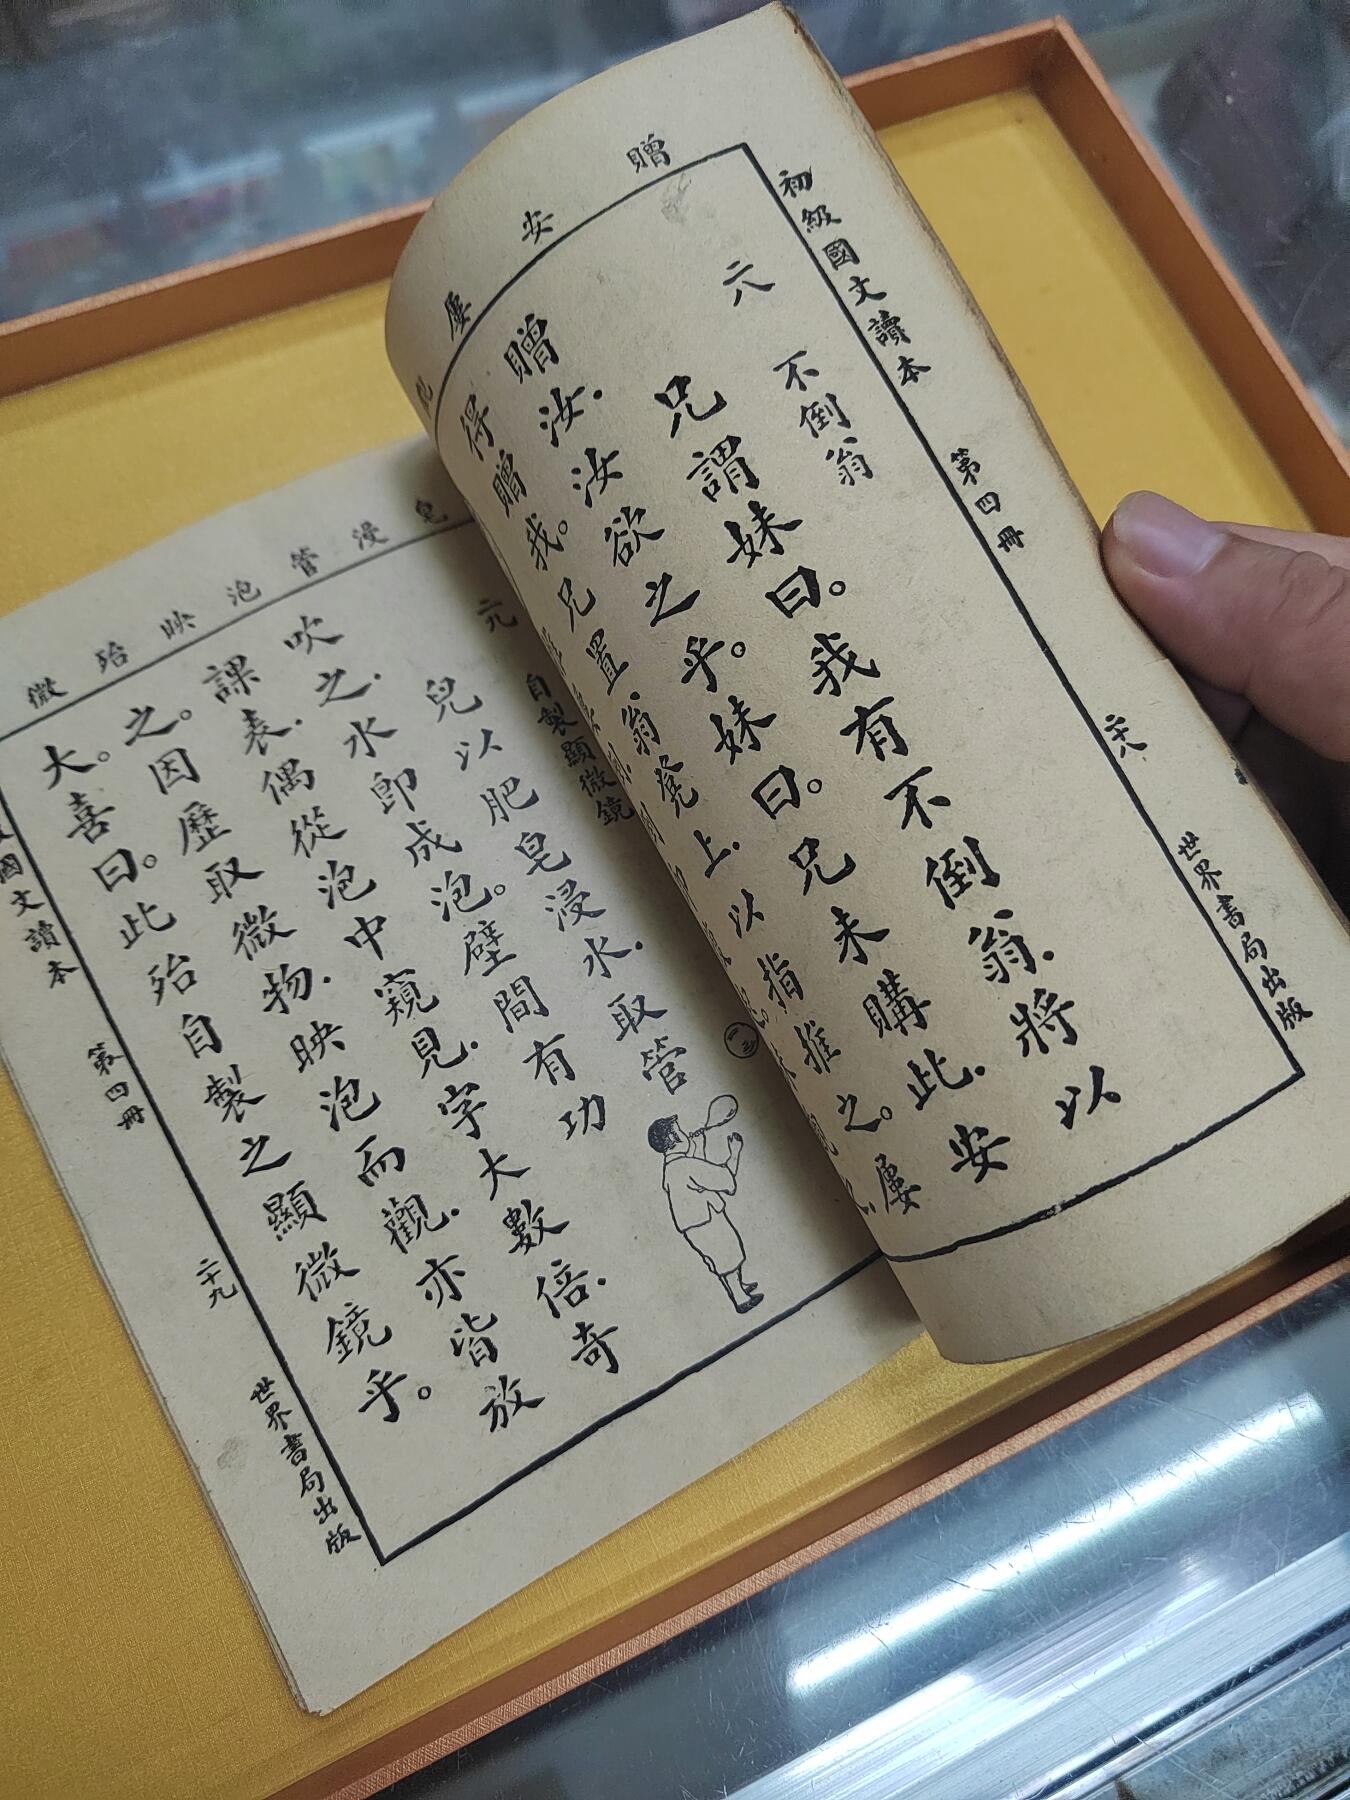 初級國文讀本 第四冊 二十八 世界書局出版
贈 安 屢
二八 不倒翁
兄謂妹曰。我有不倒翁.將以
贈汝.汝欲之乎。妹曰。兄未購此.安
得贈我。兄置翁凳上.以指推之。屢
皂 浸 管 泡 映 殆 微
二九 自製顯微鏡
兒以肥皂浸水.取管
吹之.水即成泡。壁間有功
課表.偶從泡中窺見.字大數倍.奇
之。因歷取微物.映泡而觀.亦皆放
大。喜曰。此殆自製之顯微鏡乎。
國文讀本 第四冊 二十九 世界書局出版